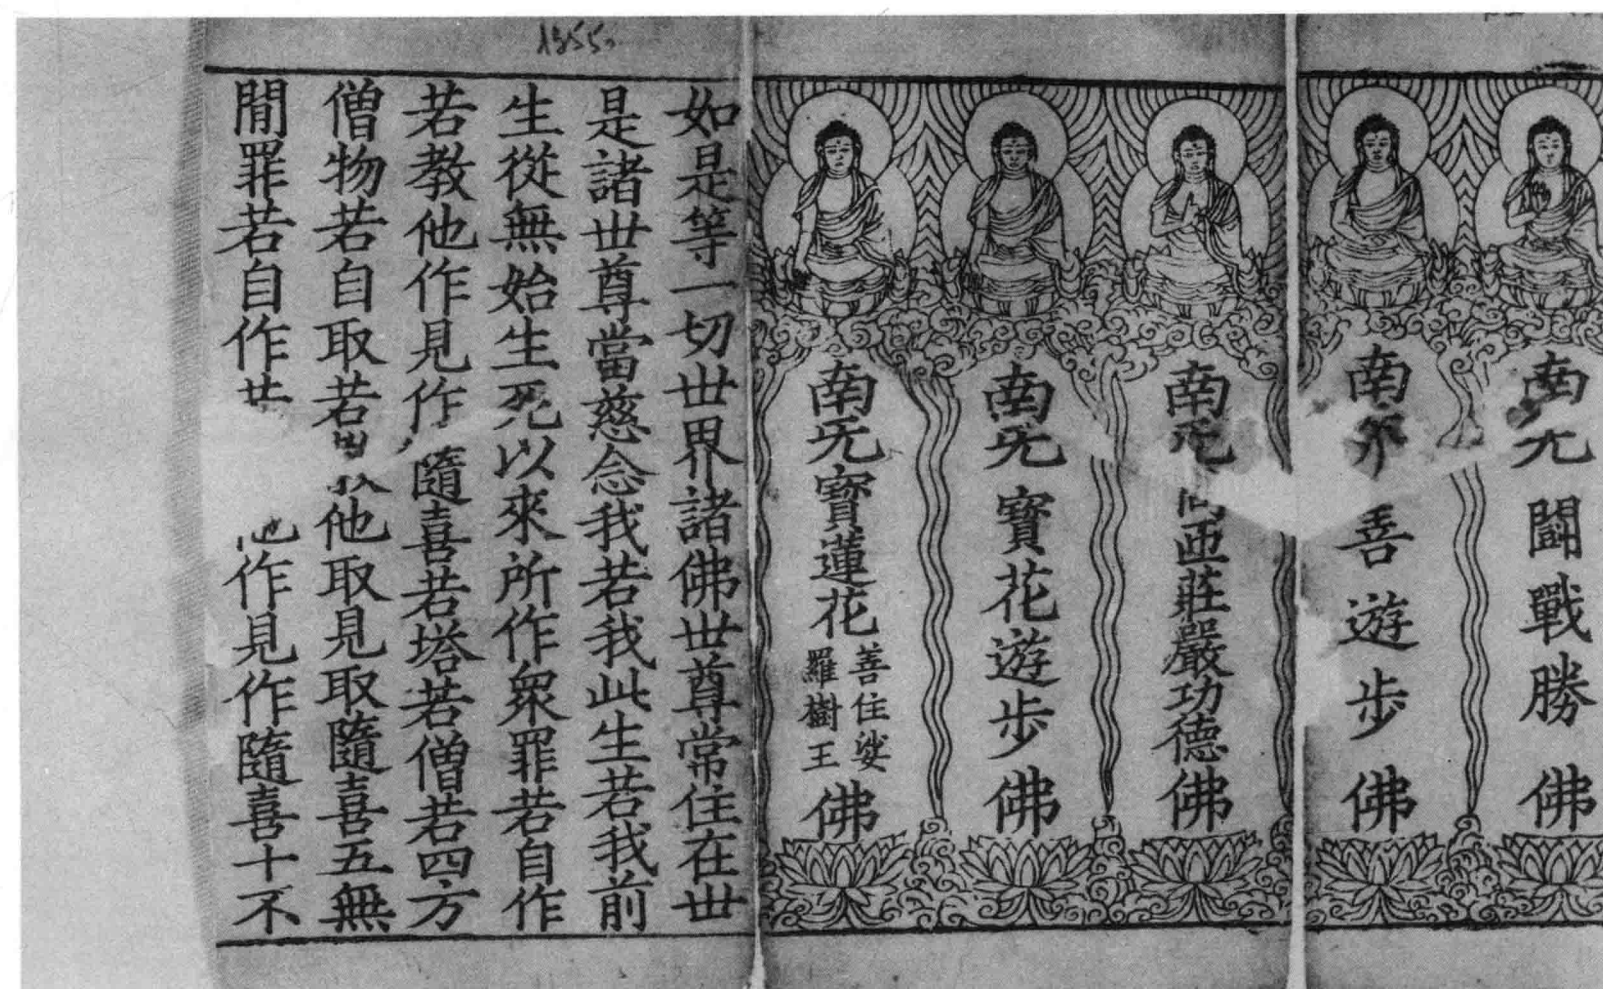 1355
南无鬪戰勝佛
南 善遊步佛
南无 帀莊嚴功德佛
南无寶花遊步佛
南无寶蓮花善住娑羅樹王佛
如是等一切世界諸佛世尊常住在世
是諸世尊當慈念我若我此生若我前
生從無始生死以來所作衆罪若自作
若教他作見作隨喜若塔若僧若四方
僧物若自取若 他取見取隨喜五無
間罪若自作 他作見作隨喜十不